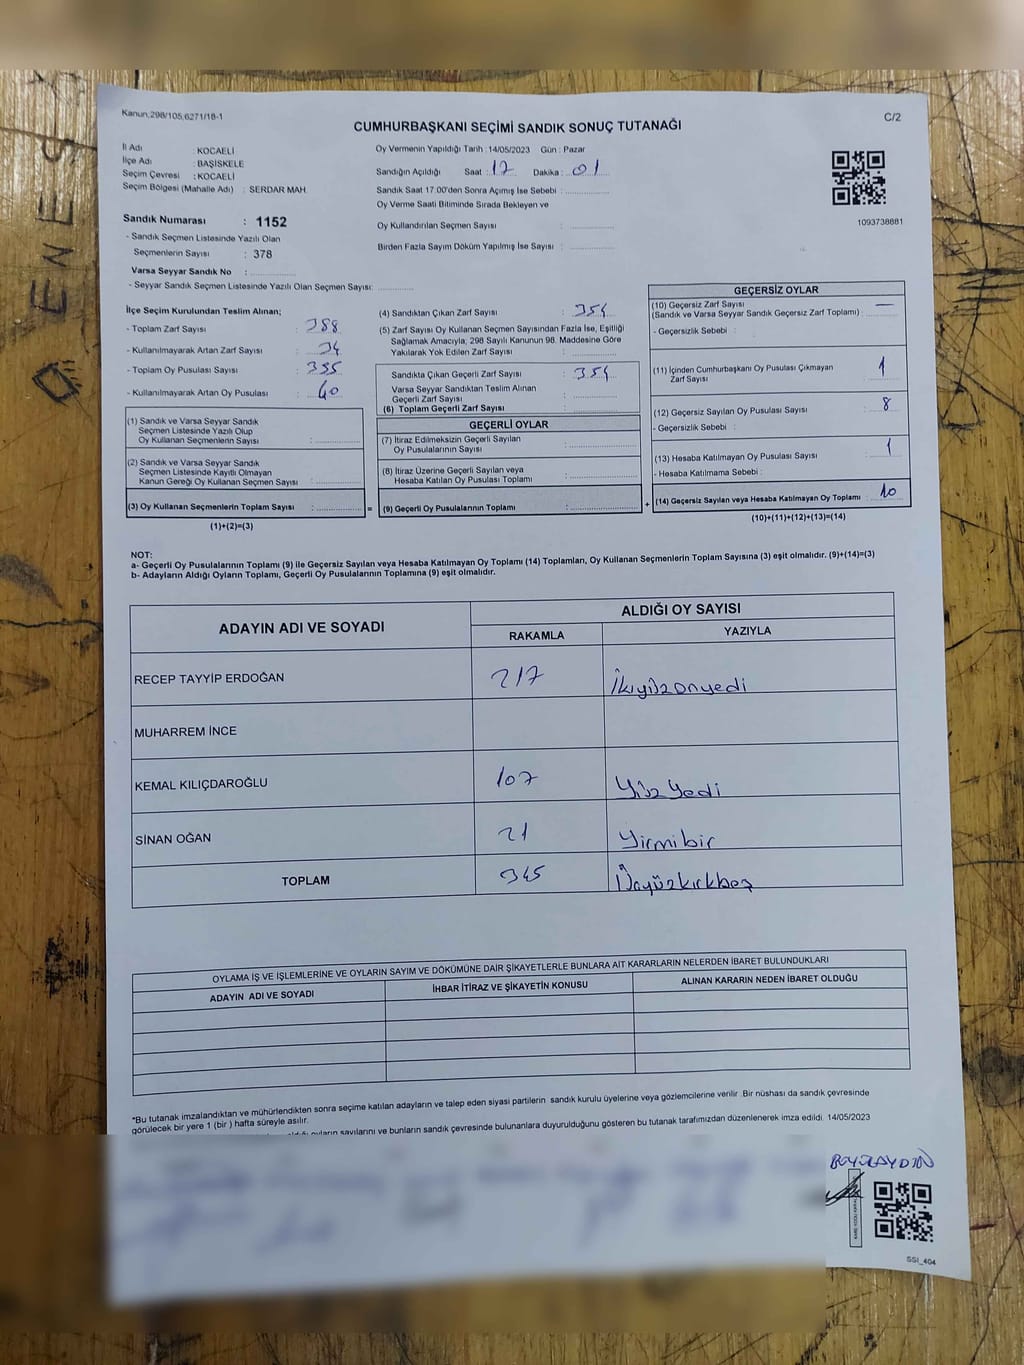 Kanun,298/105,6271/18-1
C/2
CUMHURBAŞKANI SEÇİMİ SANDIK SONUÇ TUTANAĞI
İl Adı : KOCAELİ
İlçe Adı : BAŞİSKELE
Seçim Çevresi : KOCAELİ
Seçim Bölgesi (Mahalle Adı) : SERDAR MAH.
Oy Vermenin Yapıldığı Tarih : 14/05/2023 Gün : Pazar
Sandığın Açıldığı Saat : 17 Dakika : 01
Sandık Saat 17.00'den Sonra Açımış İse Sebebi :
Oy Verme Saati Bitiminde Sırada Bekleyen ve
Oy Kullandırılan Seçmen Sayısı :
Birden Fazla Sayım Döküm Yapılmış İse Sayısı :
1093738881
Sandık Numarası : 1152
- Sandık Seçmen Listesinde Yazılı Olan
Seçmenlerin Sayısı : 378
Varsa Seyyar Sandık No :
- Seyyar Sandık Seçmen Listesinde Yazılı Olan Seçmen Sayısı:
İlçe Seçim Kurulundan Teslim Alınan;
- Toplam Zarf Sayısı : 388
- Kullanılmayarak Artan Zarf Sayısı : 34
- Toplam Oy Pusulası Sayısı : 395
- Kullanılmayarak Artan Oy Pusulası : 40
(1) Sandık ve Varsa Seyyar Sandık
Seçmen Listesinde Yazılı Olup
Oy Kullanan Seçmenlerin Sayısı :
(2) Sandık ve Varsa Seyyar Sandık
Seçmen Listesinde Kayıtlı Olmayan
Kanun Gereği Oy Kullanan Seçmen Sayısı :
(3) Oy Kullanan Seçmenlerin Toplam Sayısı : =
(1)+(2)=(3)
(4) Sandıktan Çıkan Zarf Sayısı : 354
(5) Zarf Sayısı Oy Kullanan Seçmen Sayısından Fazla İse, Eşitliği
Sağlamak Amacıyla, 298 Sayılı Kanunun 98. Maddesine Göre
Yakılarak Yok Edilen Zarf Sayısı :
Sandıkta Çıkan Geçerli Zarf Sayısı : 354
Varsa Seyyar Sandıktan Teslim Alınan
Geçerli Zarf Sayısı :
(6) Toplam Geçerli Zarf Sayısı :
GEÇERLİ OYLAR
(7) İtiraz Edilmeksizin Geçerli Sayılan
Oy Pusulalarının Sayısı :
(8) İtiraz Üzerine Geçerli Sayılan veya
Hesaba Katılan Oy Pusulası Toplamı :
(9) Geçerli Oy Pusulalarının Toplamı : +
GEÇERSİZ OYLAR
(10) Geçersiz Zarf Sayısı —
(Sandık ve Varsa Seyyar Sandık Geçersiz Zarf Toplamı) :
- Geçersizlik Sebebi :
(11) İçinden Cumhurbaşkanı Oy Pusulası Çıkmayan
Zarf Sayısı : 1
(12) Geçersiz Sayılan Oy Pusulası Sayısı : 8
- Geçersizlik Sebebi :
(13) Hesaba Katılmayan Oy Pusulası Sayısı : 1
- Hesaba Katılmama Sebebi :
(14) Geçersiz Sayılan veya Hesaba Katılmayan Oy Toplamı : 10
(10)+(11)+(12)+(13)=(14)
NOT:
a- Geçerli Oy Pusulalarının Toplamı (9) ile Geçersiz Sayılan veya Hesaba Katılmayan Oy Toplamı (14) Toplamları, Oy Kullanan Seçmenlerin Toplam Sayısına (3) eşit olmalıdır. (9)+(14)=(3)
b- Adayların Aldığı Oyların Toplamı, Geçerli Oy Pusulalarının Toplamına (9) eşit olmalıdır.
ADAYIN ADI VE SOYADI
ALDIĞI OY SAYISI
RAKAMLA YAZIYLA
RECEP TAYYİP ERDOĞAN 217 İkiyüzonyedi
MUHARREM İNCE
KEMAL KILIÇDAROĞLU 107 Yüzyedi
SİNAN OĞAN 21 Yirmibir
TOPLAM 345 Üçyüzkırkbeş
OYLAMA İŞ VE İŞLEMLERİNE VE OYLARIN SAYIM VE DÖKÜMÜNE DAİR ŞİKAYETLERLE BUNLARA AİT KARARLARIN NELERDEN İBARET BULUNDUKLARI
ADAYIN ADI VE SOYADI İHBAR İTİRAZ VE ŞİKAYETİN KONUSU ALINAN KARARIN NEDEN İBARET OLDUĞU
*Bu tutanak imzalandıktan ve mühürlendikten sonra seçime katılan adayların ve talep eden siyasi partilerin sandık kurulu üyelerine veya gözlemcilerine verilir .Bir nüshası da sandık çevresinde
görülecek bir yere 1 (bir ) hafta süreyle asılır.
oyların sayılarını ve bunların sandık çevresinde bulunanlara duyurulduğunu gösteren bu tutanak tarafımızdan düzenlenerek imza edildi. 14/05/2023
SSI_404
ENES